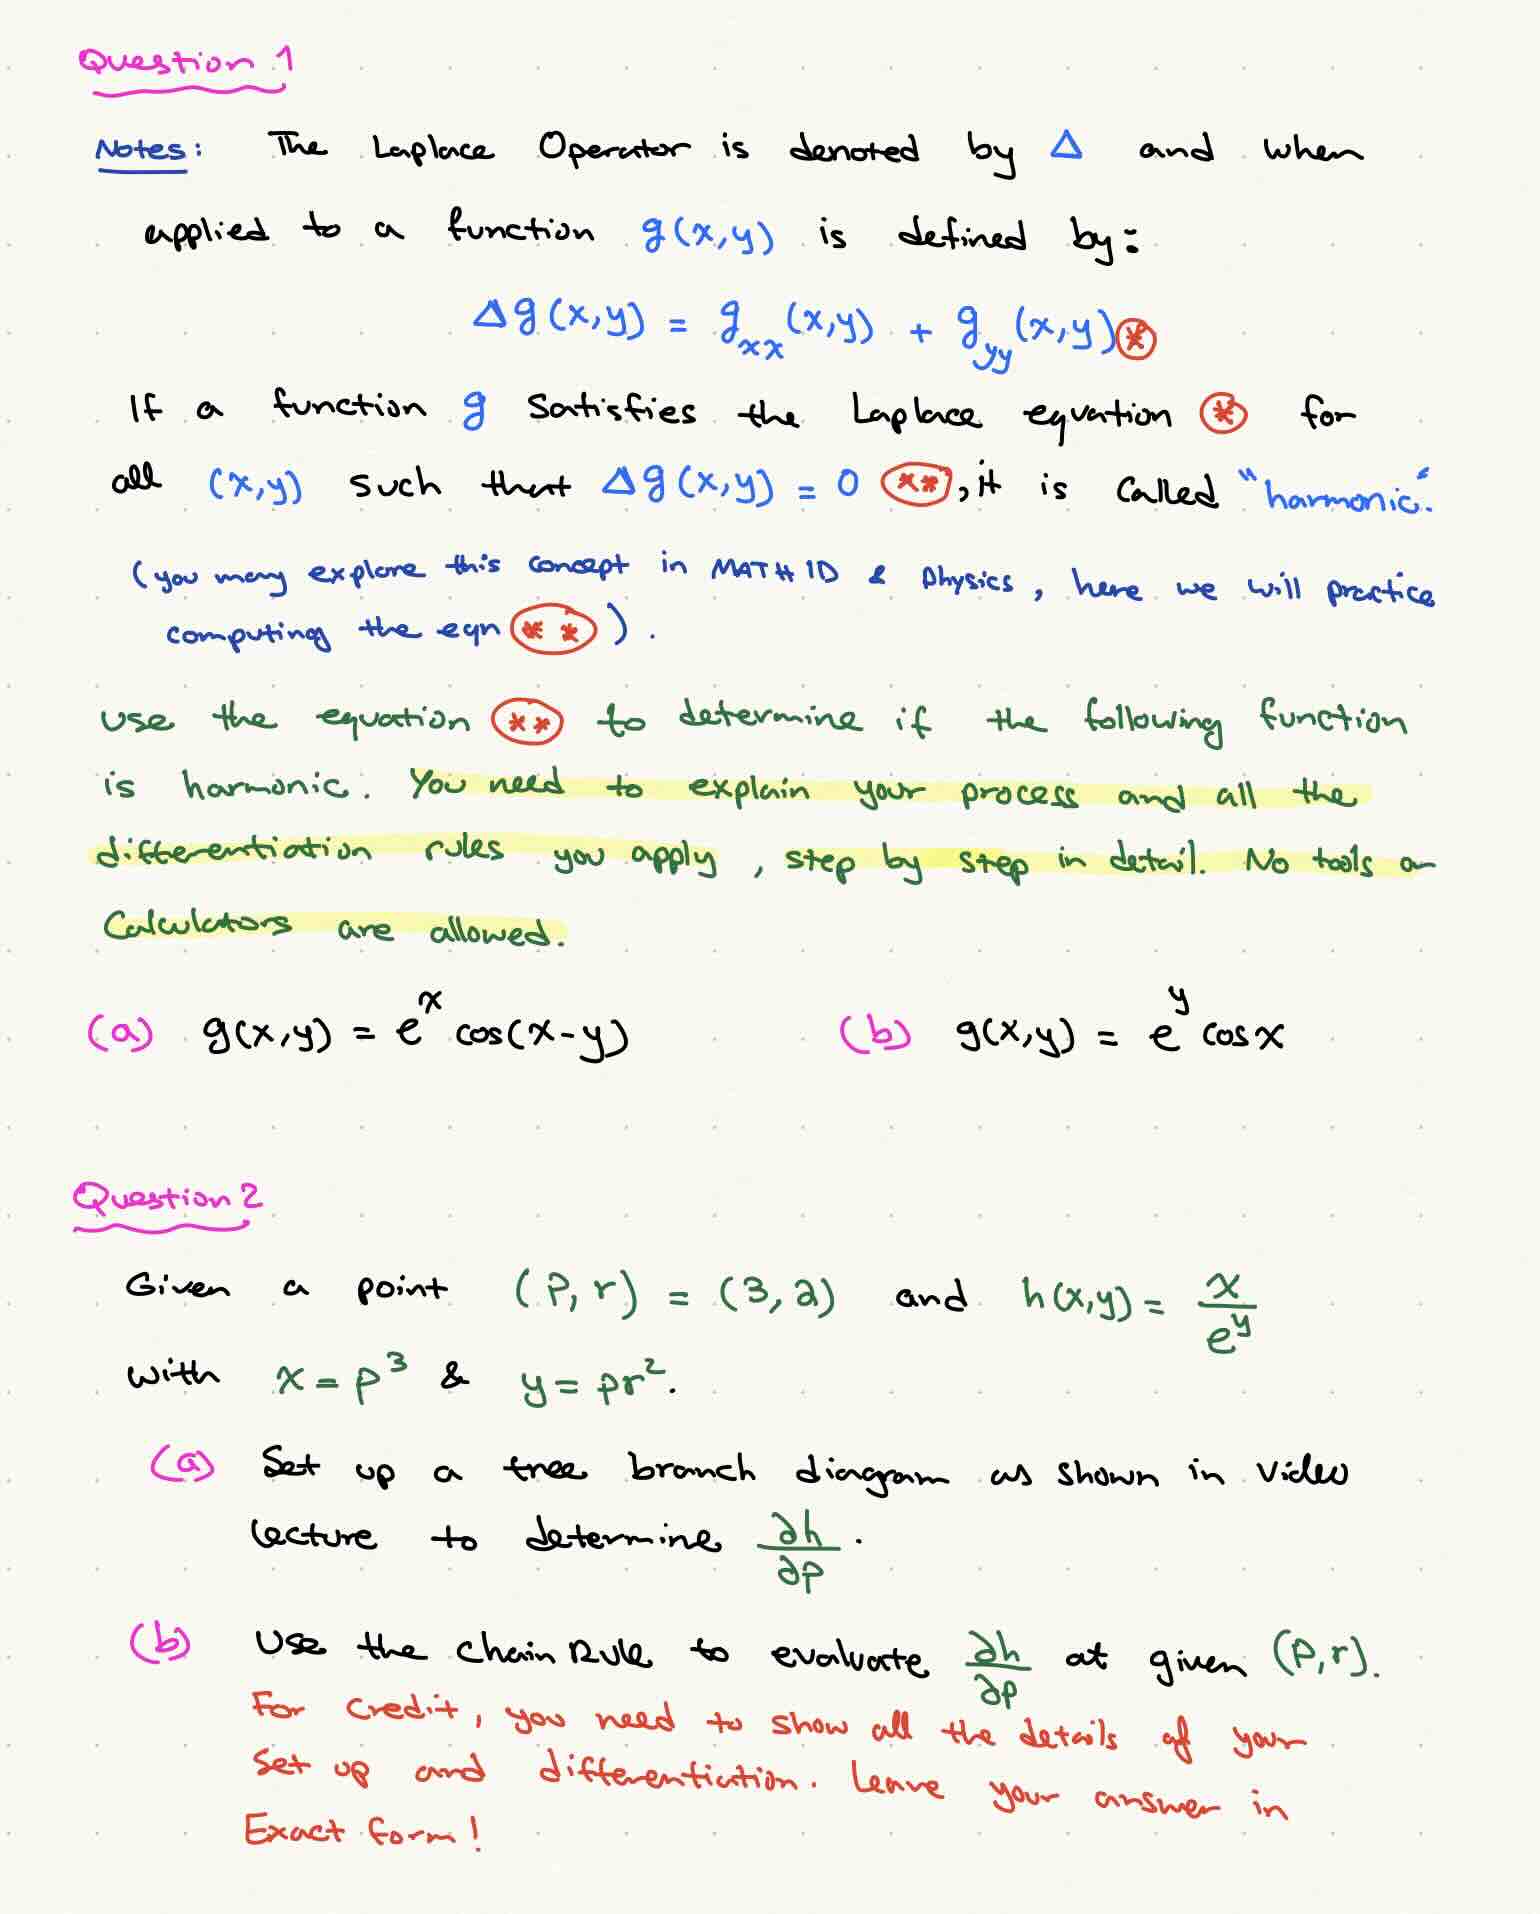 Question 1
Notes: The Laplace Operator is denoted by Δ and when
applied to a function g(x,y) is defined by:
Δg(x,y) = g_xx(x,y) + g_yy(x,y) (*)
If a function g satisfies the Laplace equation (*) for
all (x,y) such that Δg(x,y) = 0 (**), it is called "harmonic".
(you may explore this concept in MATH 1D & Physics, here we will practice
computing the eqn (**)).
Use the equation (**) to determine if the following function
is harmonic. You need to explain your process and all the
differentiation rules you apply, step by step in detail. No tools or
Calculators are allowed.
(a) g(x,y) = e^x cos(x-y) (b) g(x,y) = e^y cosx
Question 2
Given a point (p,r) = (3,2) and h(x,y) = x/e^y
with x = p^3 & y = pr^2.
(a) Set up a tree branch diagram as shown in video
lecture to determine ∂h/∂p.
(b) Use the chain Rule to evaluate ∂h/∂p at given (p,r).
For credit, you need to show all the details of your
set up and differentiation. Leave your answer in
Exact form!